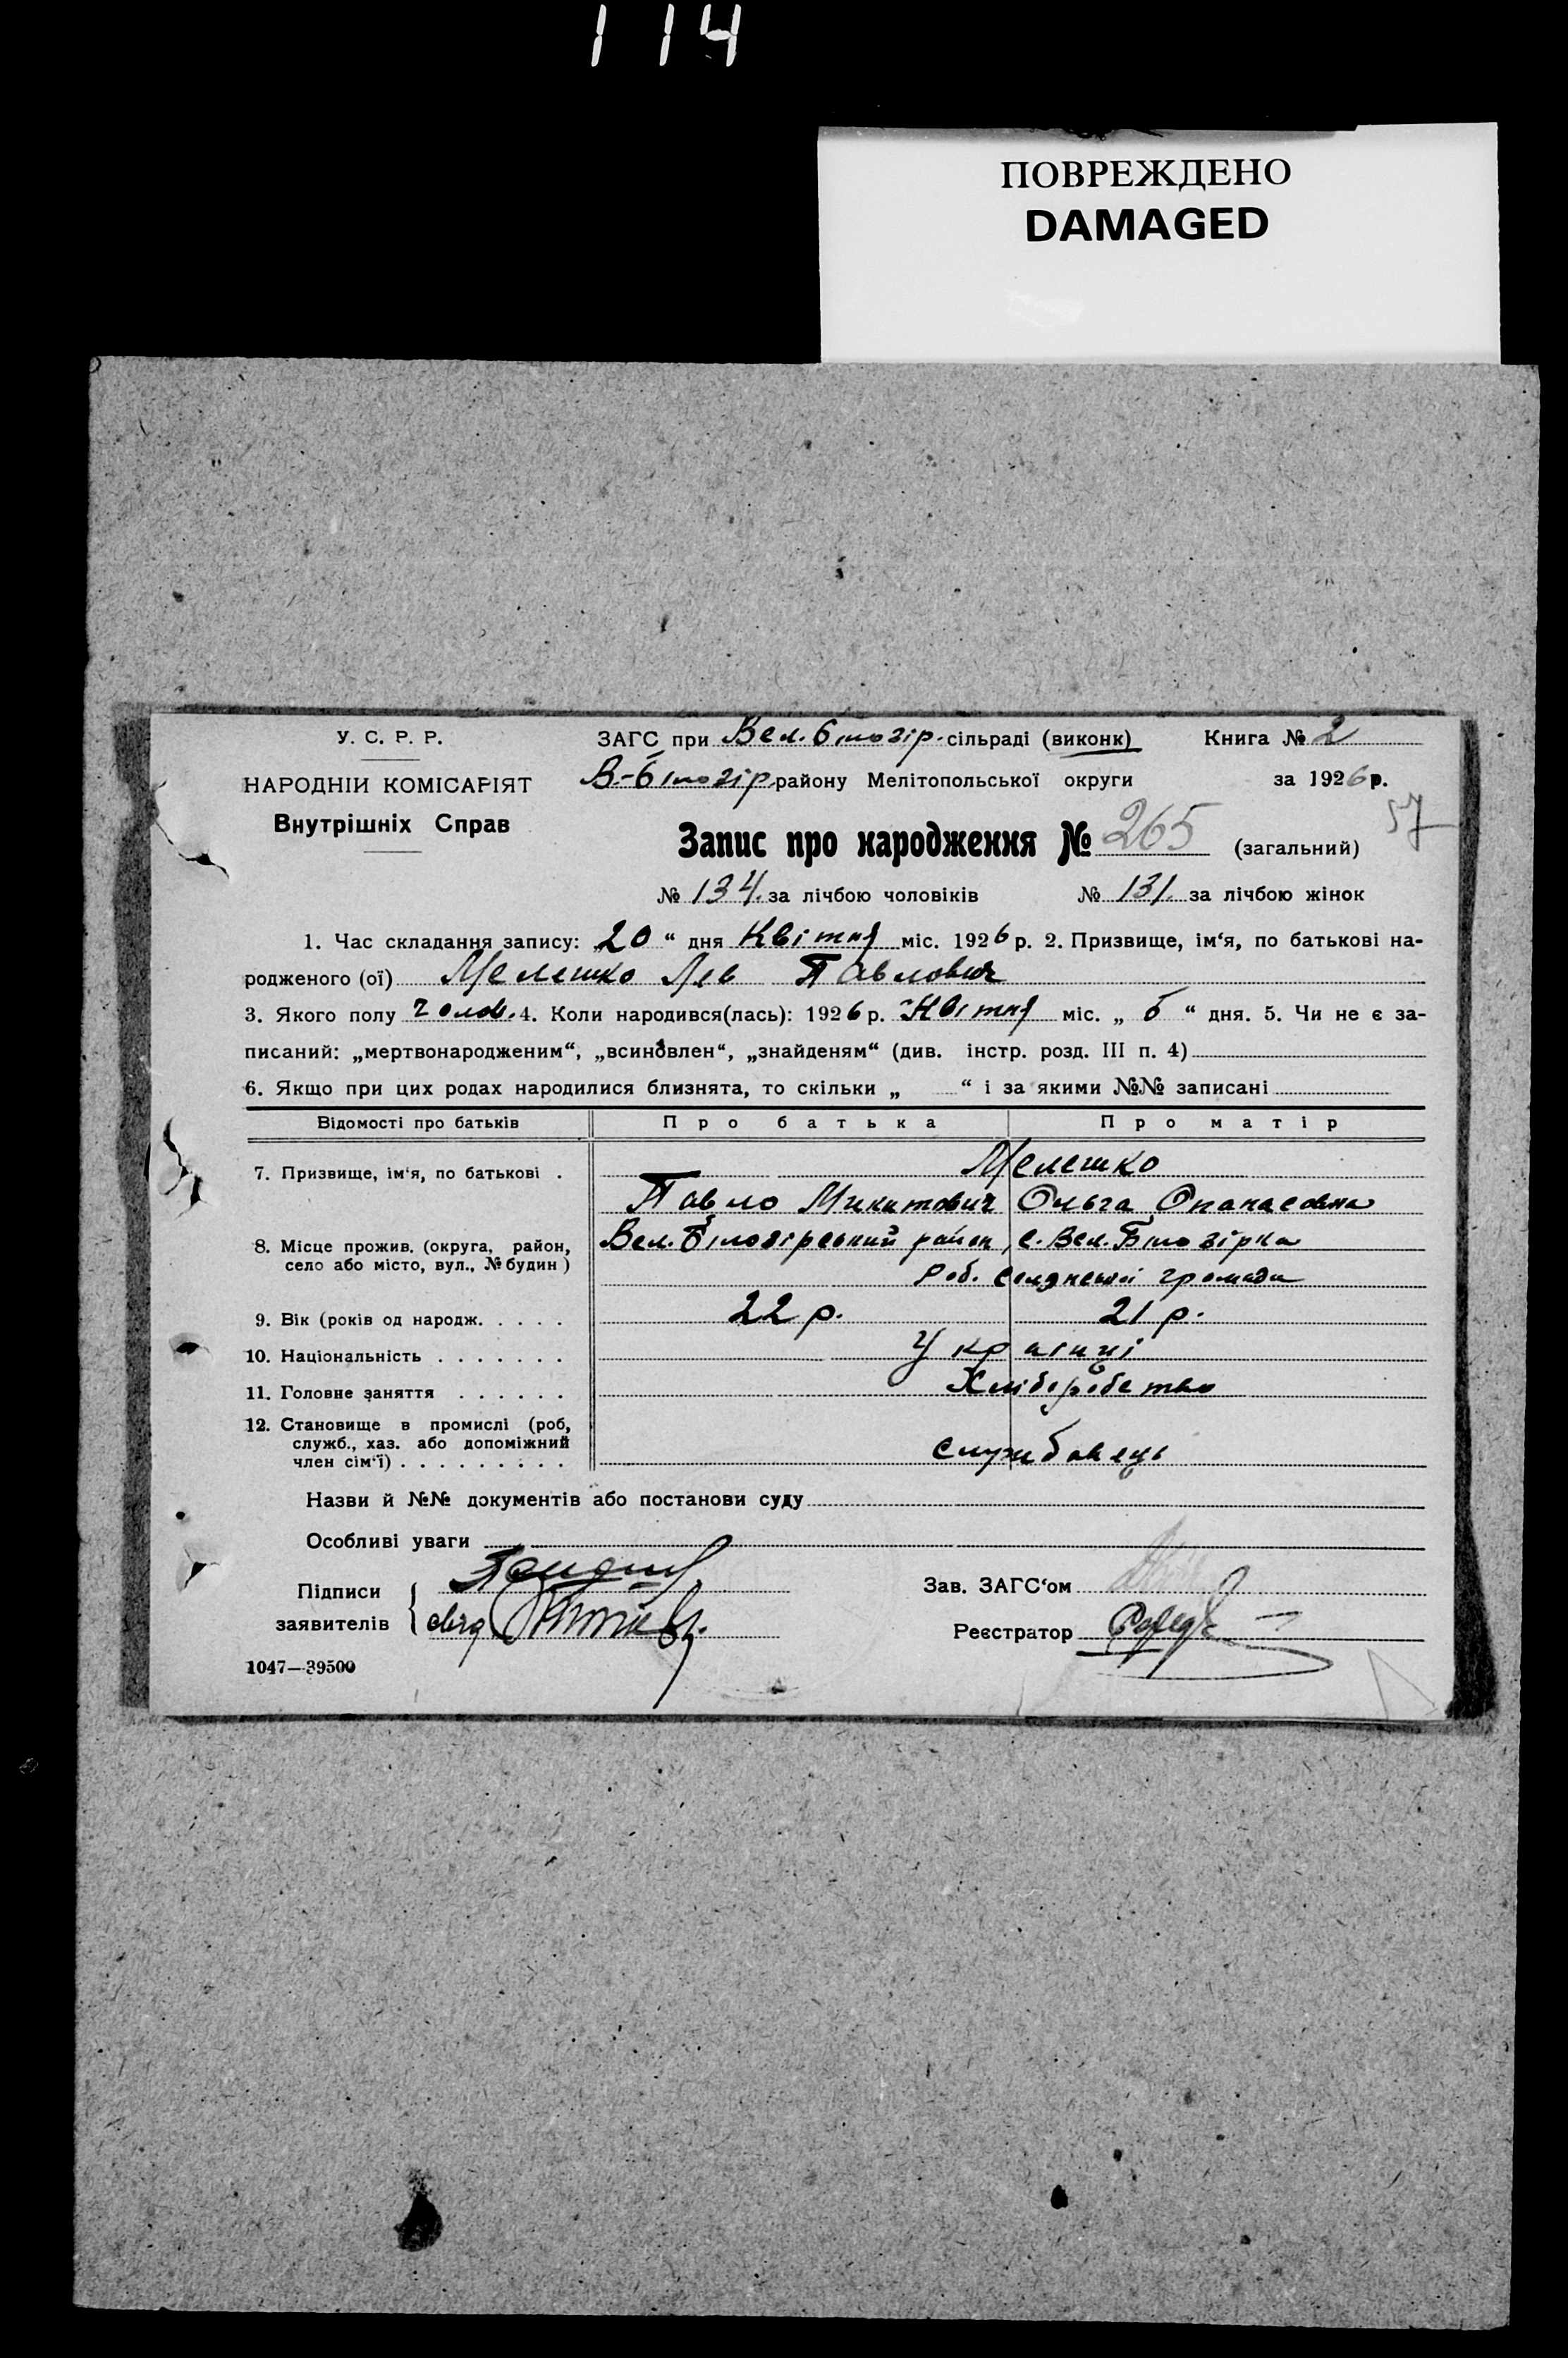 114
ПОВРЕЖДЕНО
DAMAGED
У. С. Р. Р.
НАРОДНІИ КОМІСАРІЯТ
Внутрішніх Справ
ЗАГС при Вел. Білозір. сільраді (виконк)
Книга № 2
В-Білозір району Мелітопольської округи
за 1926 р.
57
Запис про народження № 265 (загальний)
№ 134. за лічбою чоловіків № 131. за лічбою жінок
1. Час складання запису: „20“ дня Квітня міс. 1926 р. 2. Призвище, ім‘я, по батькові на-
родженого (ої) Мелешко Лев Павлович
3. Якого полу чолов. 4. Коли народився(лась): 1926 р. Квітня міс. „ 6 “ дня. 5. Чи не є за-
писаний: „мертвонародженим“, „всиновлен“, „знайденям“ (див. інстр. розд. III п. 4)
6. Якщо при цих родах народилися близнята, то скільки „ “ і за якими №№ записані
Відомості про батьків Про батька Про матір
7. Призвище, ім‘я, по батькові . Мелешко
Павло Микитович Ольга Опанасовна
8. Місце прожив. (округа, район,
село або місто, вул., № будин)
Вел. Білозірський район, с. Вел. Білозірка
громади
9. Вік (років од народж. . . . . 22 р. 21 р.
10. Національність . . . . . . . Украінці
11. Головне заняття . . . . . . Хліборобство
12. Становище в промислі (роб,
служб., хаз. або допоміжний
член сім‘ї) . . . . . . . . . службовець
Назви й №№ документів або постанови суду
Особливі уваги
Підписи
заявителів
свід
Зав. ЗАГС‘ом
Реєстратор
1047—39500